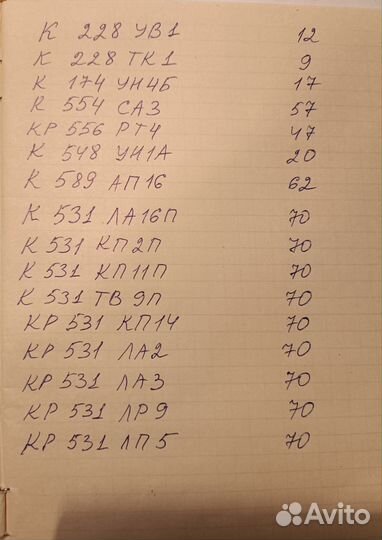 К 228 УВ1 12
К 228 ТК1 9
К 174 УН4Б 17
К 554 СА3 57
КР 556 РТ4 47
К 548 УН1А 20
К 589 АП16 62
К 531 ЛА16П 70
К 531 КП2П 70
К 531 КП11П 70
К 531 ТВ 9П 70
КР 531 КП14 70
КР 531 ЛА2 70
КР 531 ЛА3 70
КР 531 ЛР9 70
КР 531 ЛП5 70
Avito